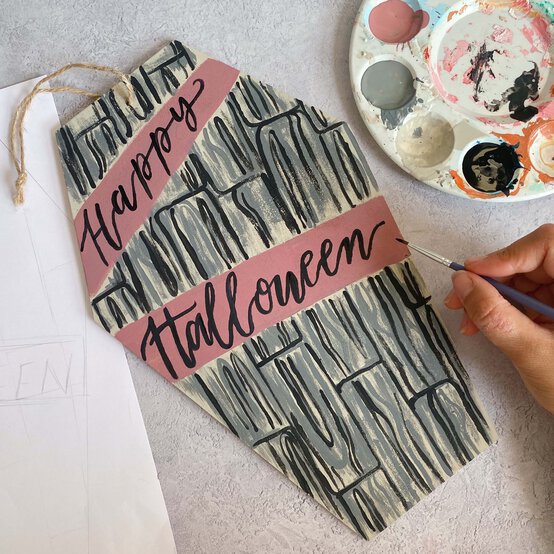 Happy
Halloween
EEN